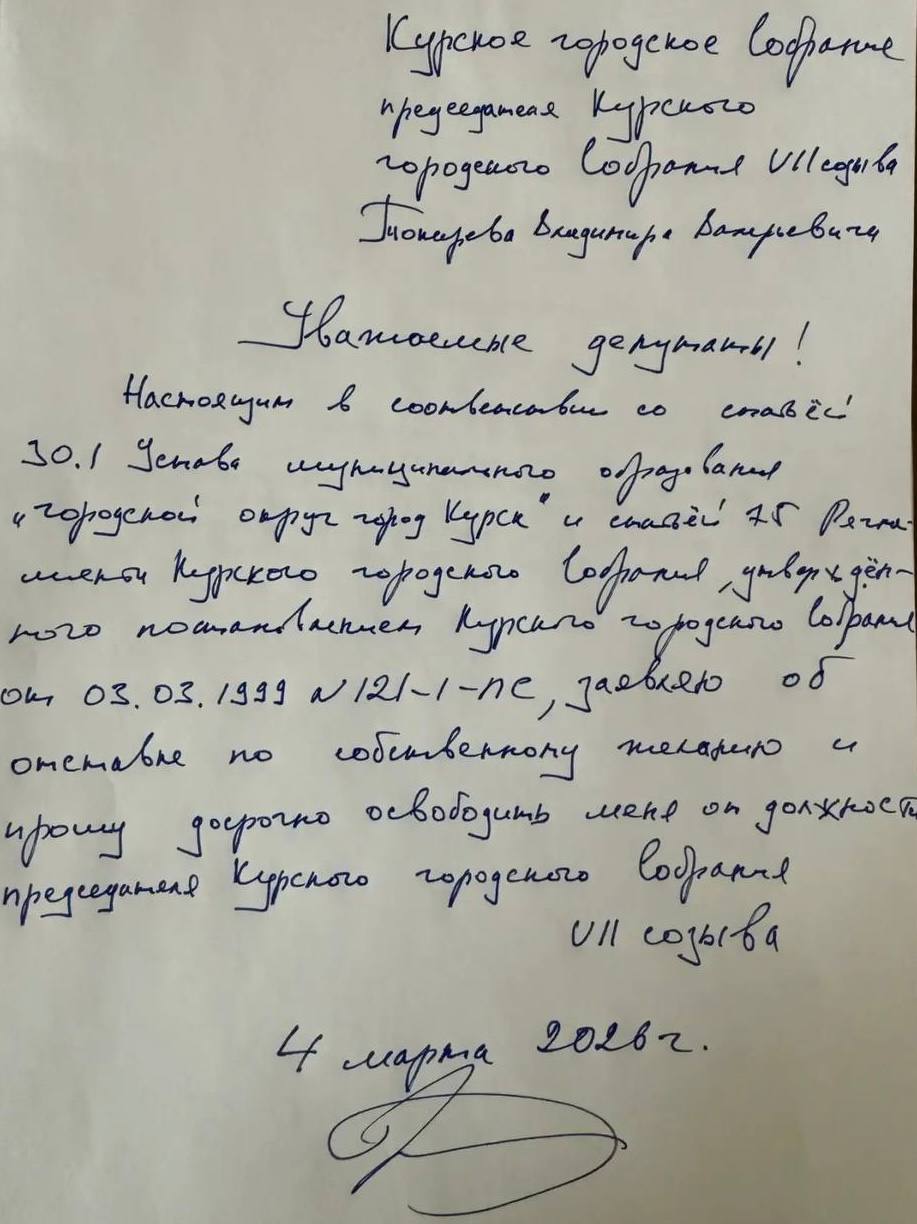 Курское городское Собрание
председателя Курского
городского Собрания VII созыва
Токарева Владимира Валерьевича
Уважаемые депутаты!
Настоящим в соответствии со статьёй
30.1 Устава муниципального образования
"городской округ город Курск" и статьёй 75 Регла-
мента Курского городского Собрания, утверждён-
ного постановлением Курского городского Собрания
от 03.03.1999 N121-1-ПС, заявляю об
отставке по собственному желанию и
прошу досрочно освободить меня от должности
председателя Курского городского Собрания
VII созыва
4 марта 2026 г.